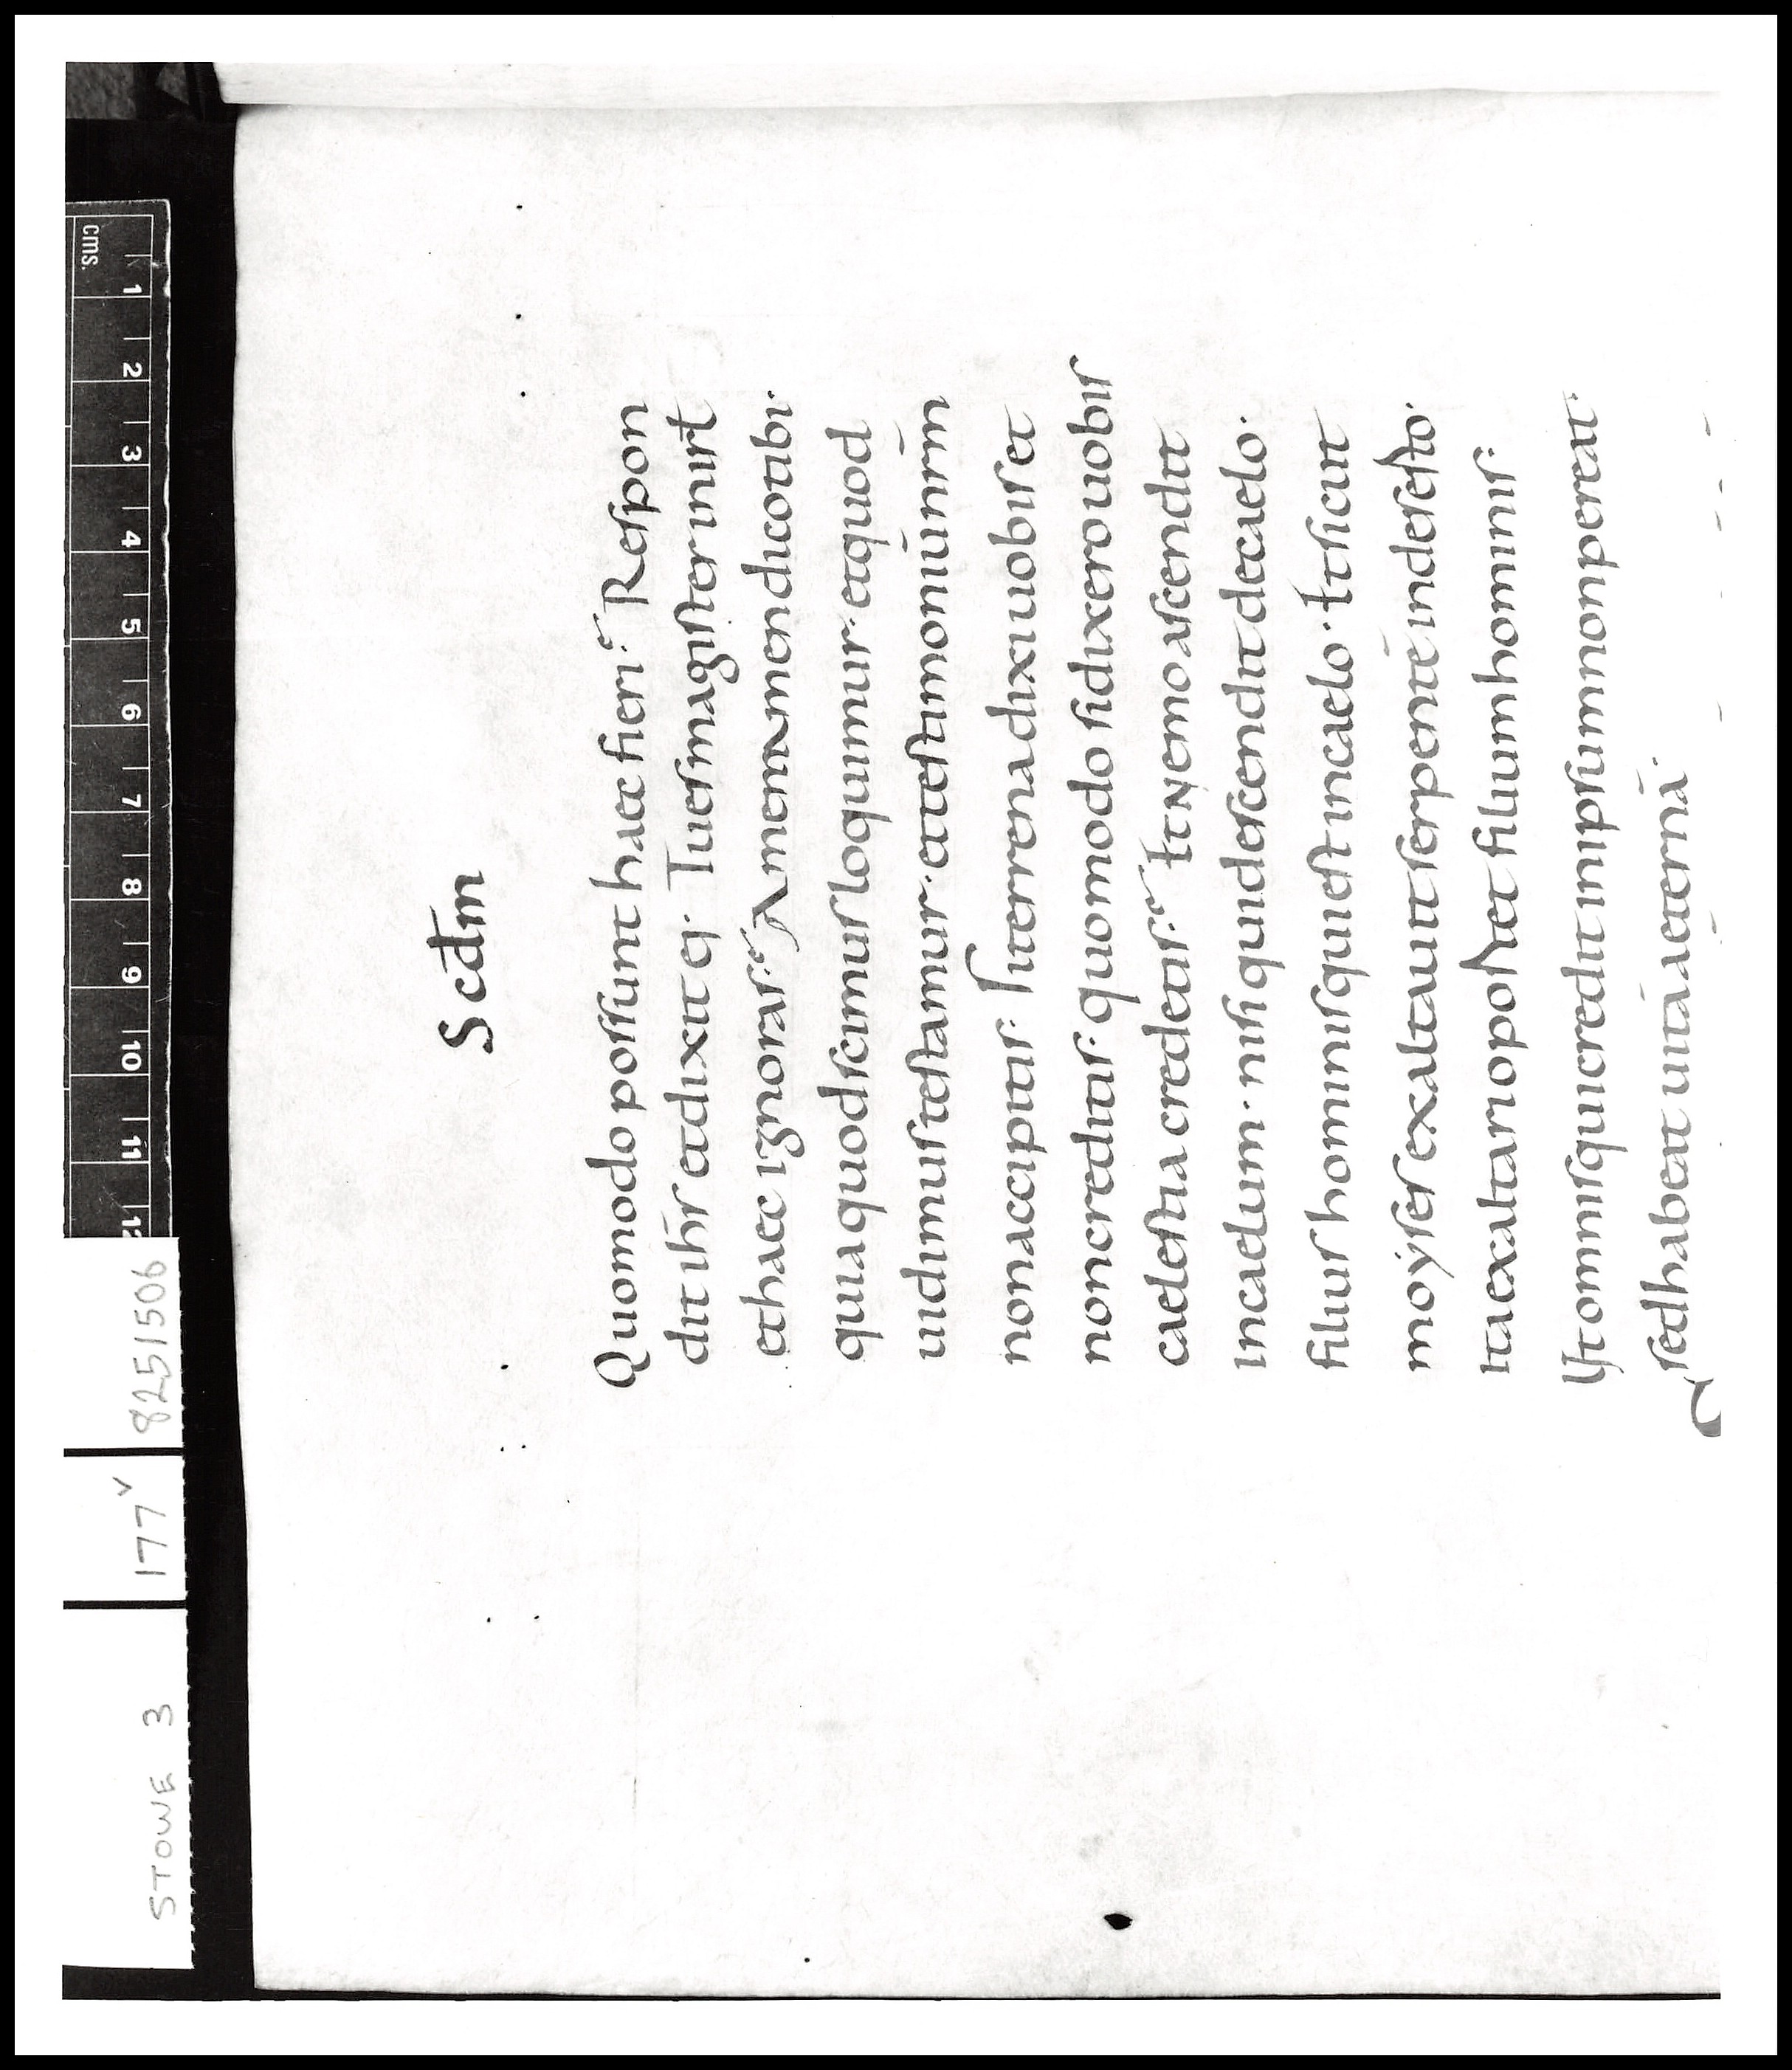 Scdm
Quomodo possunt haec fieri? Respon
dit ihs et dixit ei. Tu es magister in isrł
et haec ignoras? Amen amen dico tibi.
quia quod scimus loquimur. et quod
uidimus testamur. et testimoniū nrm
non accipitis. Si terrena dixi uobis et
non creditis. quomodo si dixero uobis
caelestia credetis? Et Nemo ascendit
in caelum. nisi qui descendit de caelo.
filius hominis qui est in caelo. Et sicut
moyses exaltauit serpentē in deserto.
ita exaltari oportet filium hominis.
Ut omnis qui credit in ipsum non pereat.
sed habeat uitā aeternā.
STOWE 3
177v
8251506
cms.
1 2 3 4 5 6 7 8 9 10 11 12